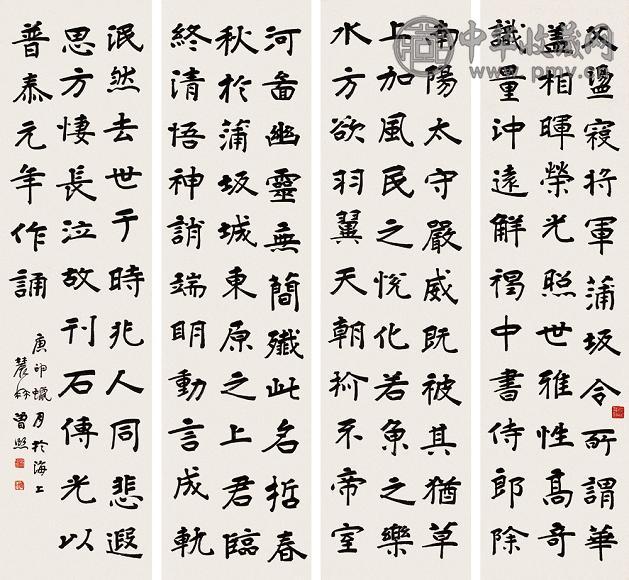 中华收藏网
父盪寇将軍蒲坂令所謂華
盖相暉榮光照世雅性高奇
識量沖遠解褐中書侍郎除
南陽太守嚴威既被其猶草
上加風民之悅化若魚之樂
水方欲羽翼天朝抓牙帝室
河啚幽靈無簡殲此名哲春
秋於蒲坂城東原之上君臨
終清悟神誚端明動言成軌
泯然去世于時兆人同悲遐
思方悽長泣故刊石傳光以
普泰元年作誦
庚申蠟月於海上
農髯曾熙